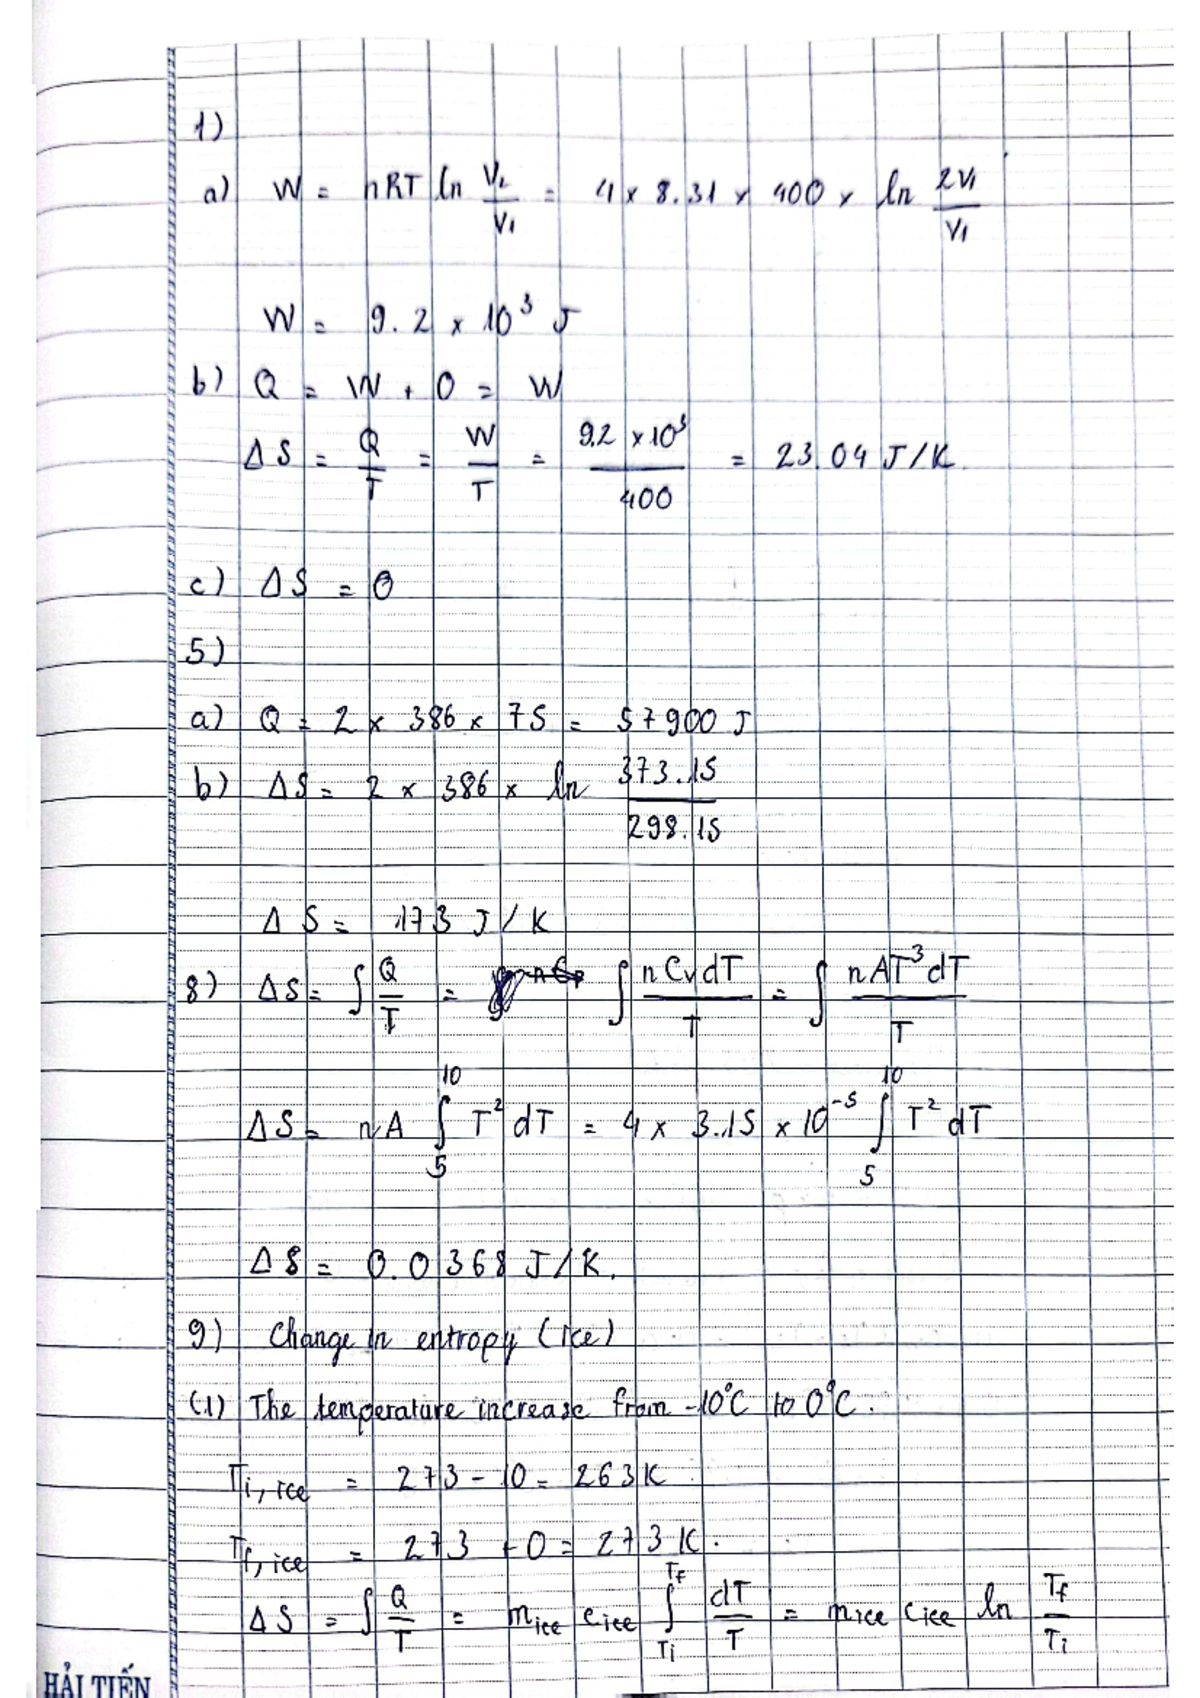 1)
a) W = nRT ln V₂/V₁ = 4 × 8.31 × 400 × ln 2V₁/V₁
W = 9.2 × 10³ J
b) Q = W + 0 = W
ΔS = Q/T = W/T = 9.2 × 10³/400 = 23.04 J/K.
c) ΔS = 0
5)
a) Q = 2 × 386 × 75 = 57900 J
b) ΔS = 2 × 386 × ln 373.15/298.15
ΔS = 173 J/K
8) ΔS = ∫ Q/T = ∫ nCvdT/T = ∫ nAT³dT/T
ΔS = nA ∫₅¹⁰ T² dT = 4 × 3.15 × 10⁻⁵ ∫₅¹⁰ T² dT
ΔS = 0.0368 J/K.
9) Change in entropy (ice)
(1) The temperature increase from -10°C to 0°C.
Ti, ice = 273 - 10 = 263 K
Tf, ice = 273 + 0 = 273 K.
ΔS = ∫ Q/T = m ice c ice ∫ Ti Tf dT/T = m ice c ice ln Tf/Ti
HẢI TIẾN